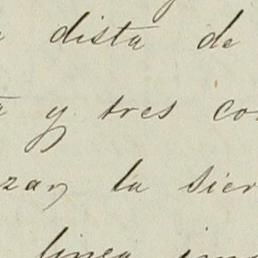 dista de
y tres co
zan la sier
linea